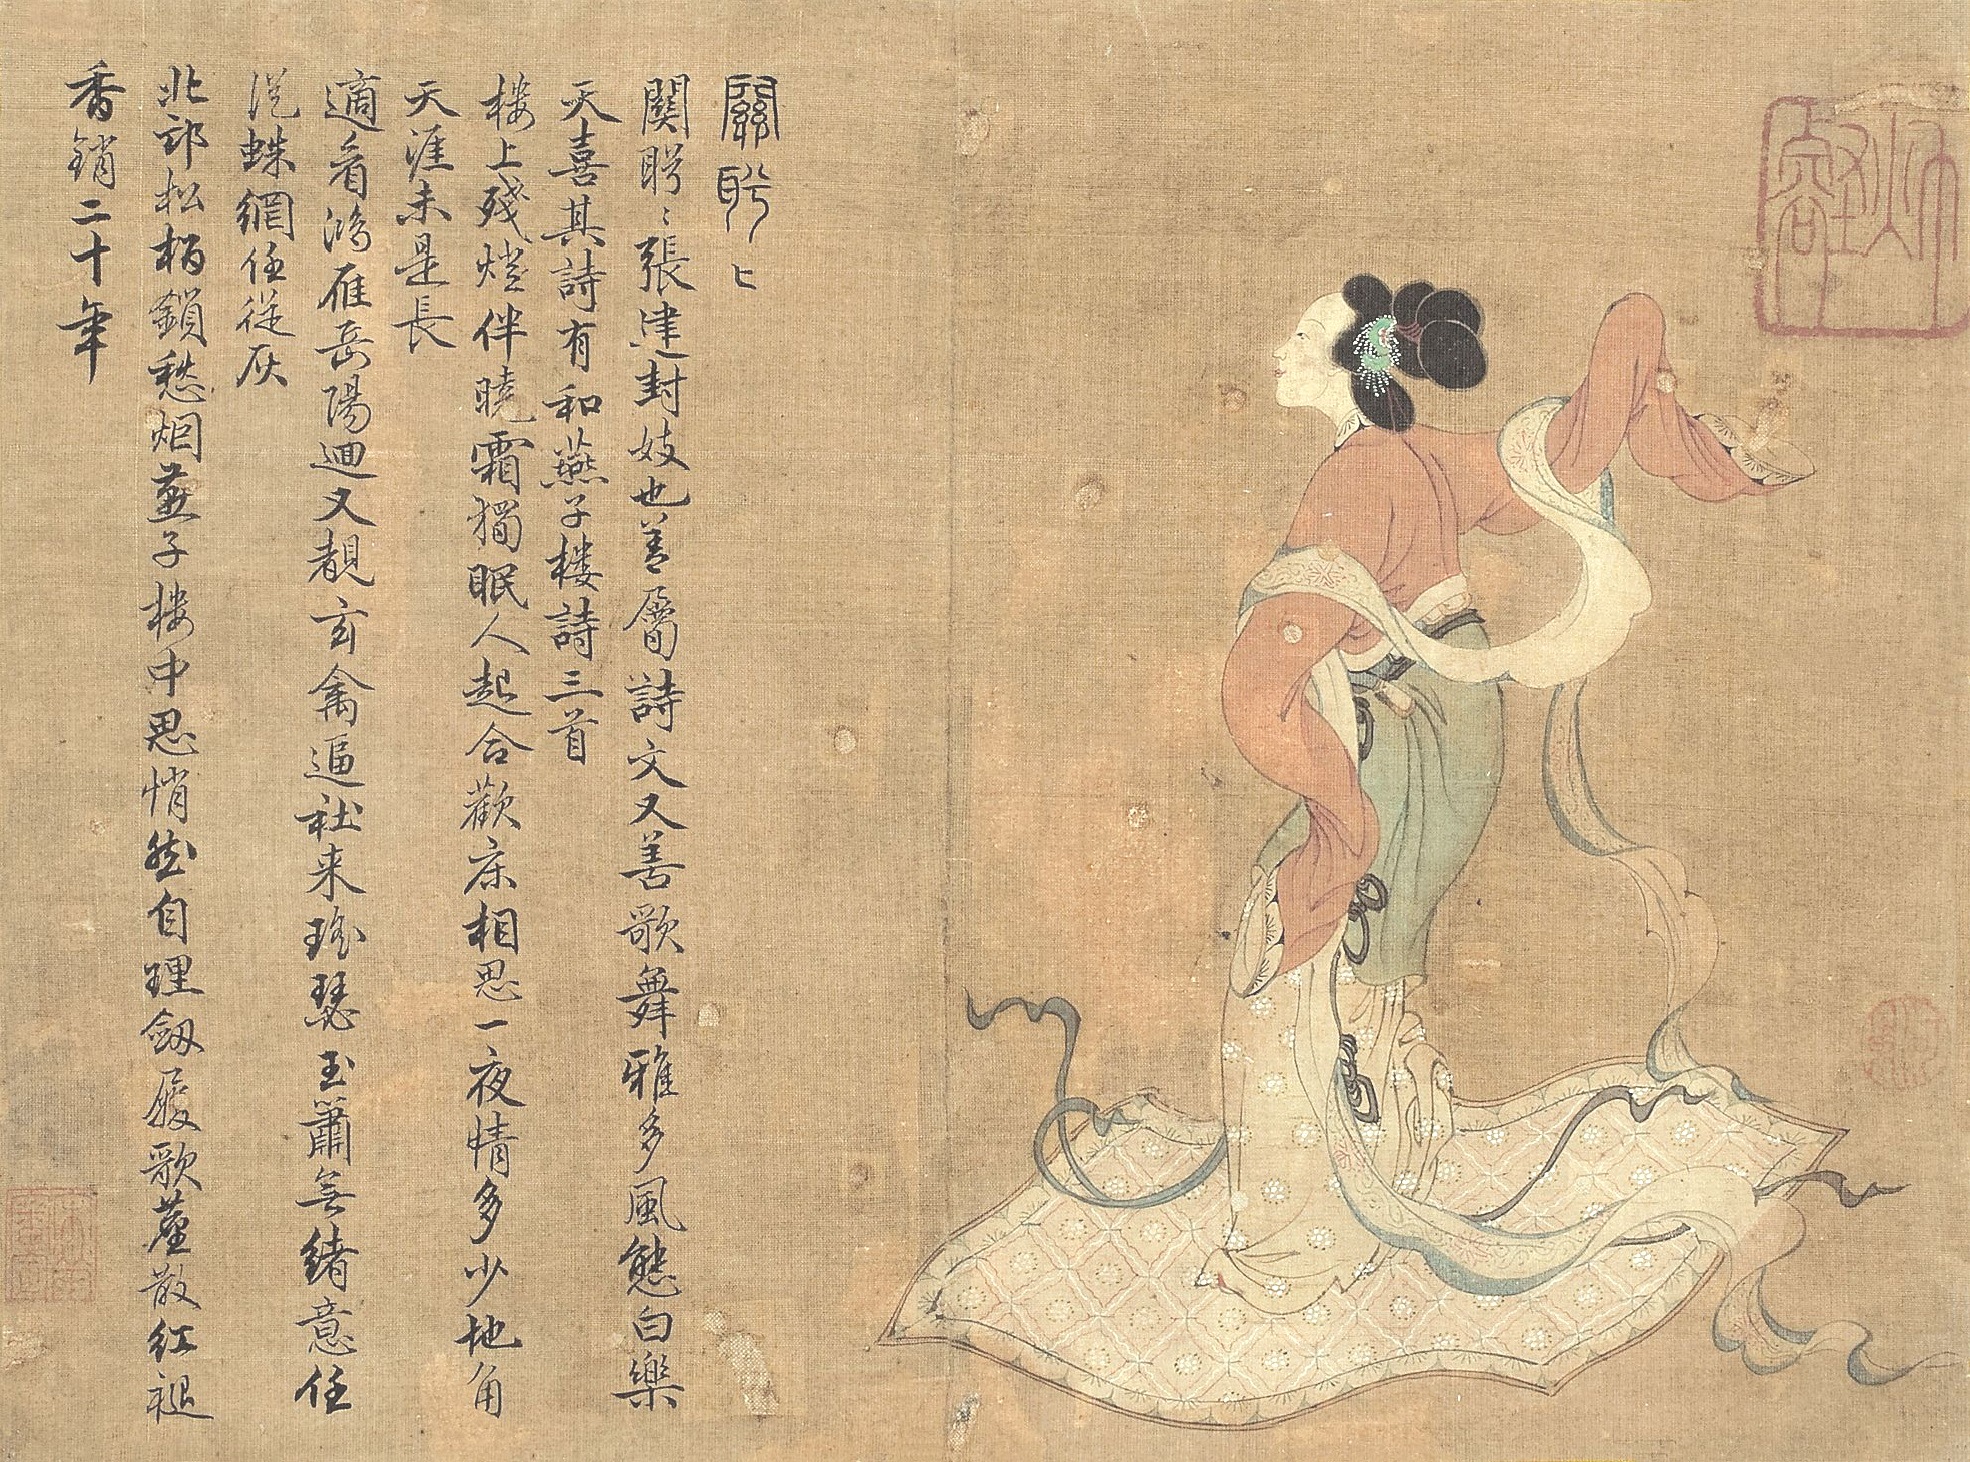 關盼〻
関盼〻張建封妓也善屬詩文又善歌舞雅多風態白樂
天喜其詩有和燕子樓詩三首
樓上殘燈伴曉霜獨眠人起合歡床相思一夜情多少地角
天涯未是長
適看鴻雁岳陽迴又覩玄禽逼社来瑤瑟玉簫無緒意任
從蛛網任從灰
北邙松柏鎖愁烟燕子樓中思悄然自理劔履歌塵散紅褪
香銷二十年